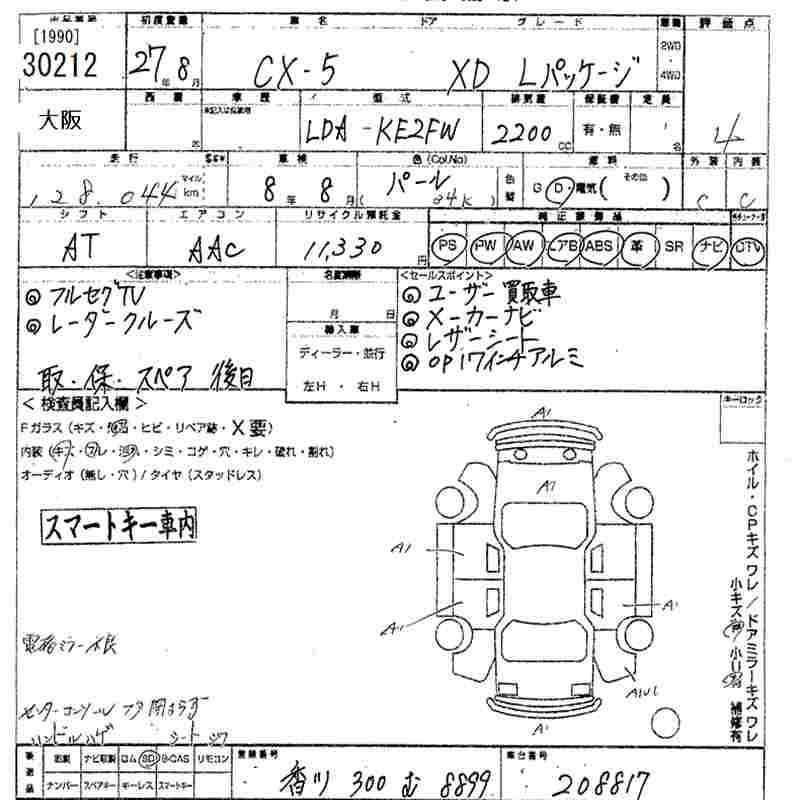 出品番号 初度登録 車名 ドア グレード 車種 評価点
[1990]
30212 27年 8月 CX-5 XD Lパッケージ 2WD 4WD
大阪 車歴 型式 排気量 保証書 定員 4
LDA-KE2FW 2200 CC 有・無 名
走行 車検 色(Col.No) 燃料 外装 内装
128,044 マイル km 8年 8月 パール (34K) 色替 G D 電気( その他 ) C C
シフト エアコン リサイクル預託金 純正装備品
AT AAC 11,330円 PS PW AW エアB ABS 革 SR ナビ DTV
<注意事項> 名変期限 <セールスポイント>
◎フルセグTV 月 日 ◎ユーザー買取車
◎レーダークルーズ 輸入車 ◎メーカーナビ
ディーラー・並行 ◎レザーシート
取・保・スペア 後日 左H・右H ◎OP17インチアルミ
<検査員記入欄> キーロック
Fガラス(キズ・飛石・ヒビ・リペア跡・X要)
内装(キズ・スレ・汚れ・シミ・コゲ・穴・キレ・破れ・割れ)
オーディオ(無し・穴)/タイヤ(スタッドレス)
スマートキー車内
A1
A7
A1
A1
A1
A1
ホイル・CPキズワレ/ドアミラーキズワレ
小キズ有 小U有 補修有
電格ミラー不良
センターコンソール フタ閉まらず
ハンドルハゲ シートシワ
後送品 記録 ナビ取説 ロム SD B-CAS リモコン 登録番号 車台番号
ナンバー スペアキー キーレス スマートキー 香川 300 む 8899 208817